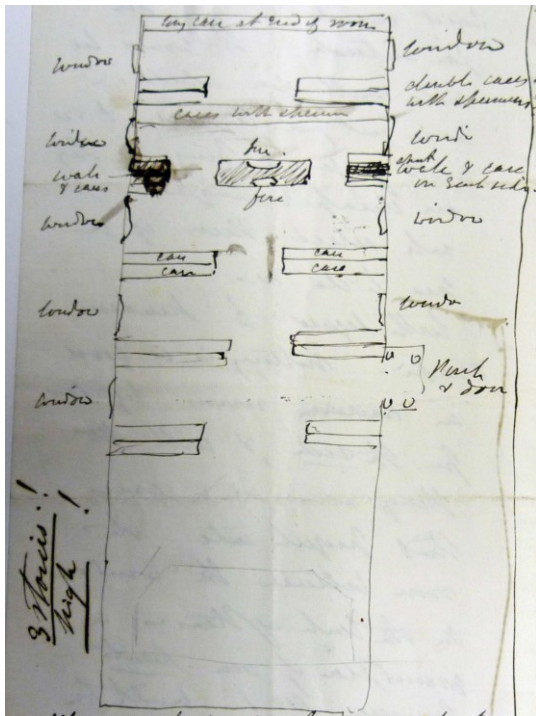 long case at end of room
window
window
double cases
with specimens
cases with specimen
window
windo
fire.
wall
& cases
wall & case
on each side
fire
window
window
case
case
case
case
window
window
Porch
& door
window
3 stories!!
high!